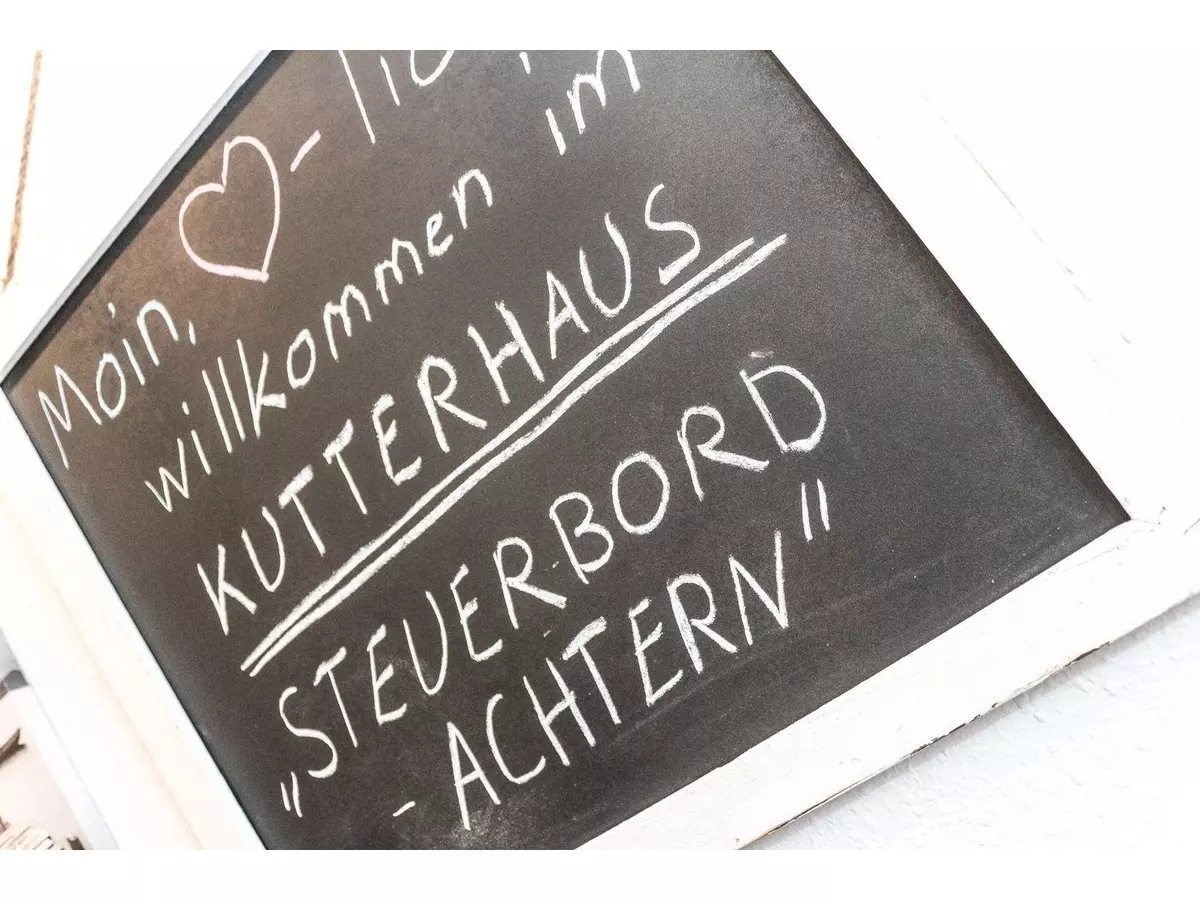 Moin, ♡-lich
willkommen im
KUTTERHAUS
„STEUERBORD
- ACHTERN"